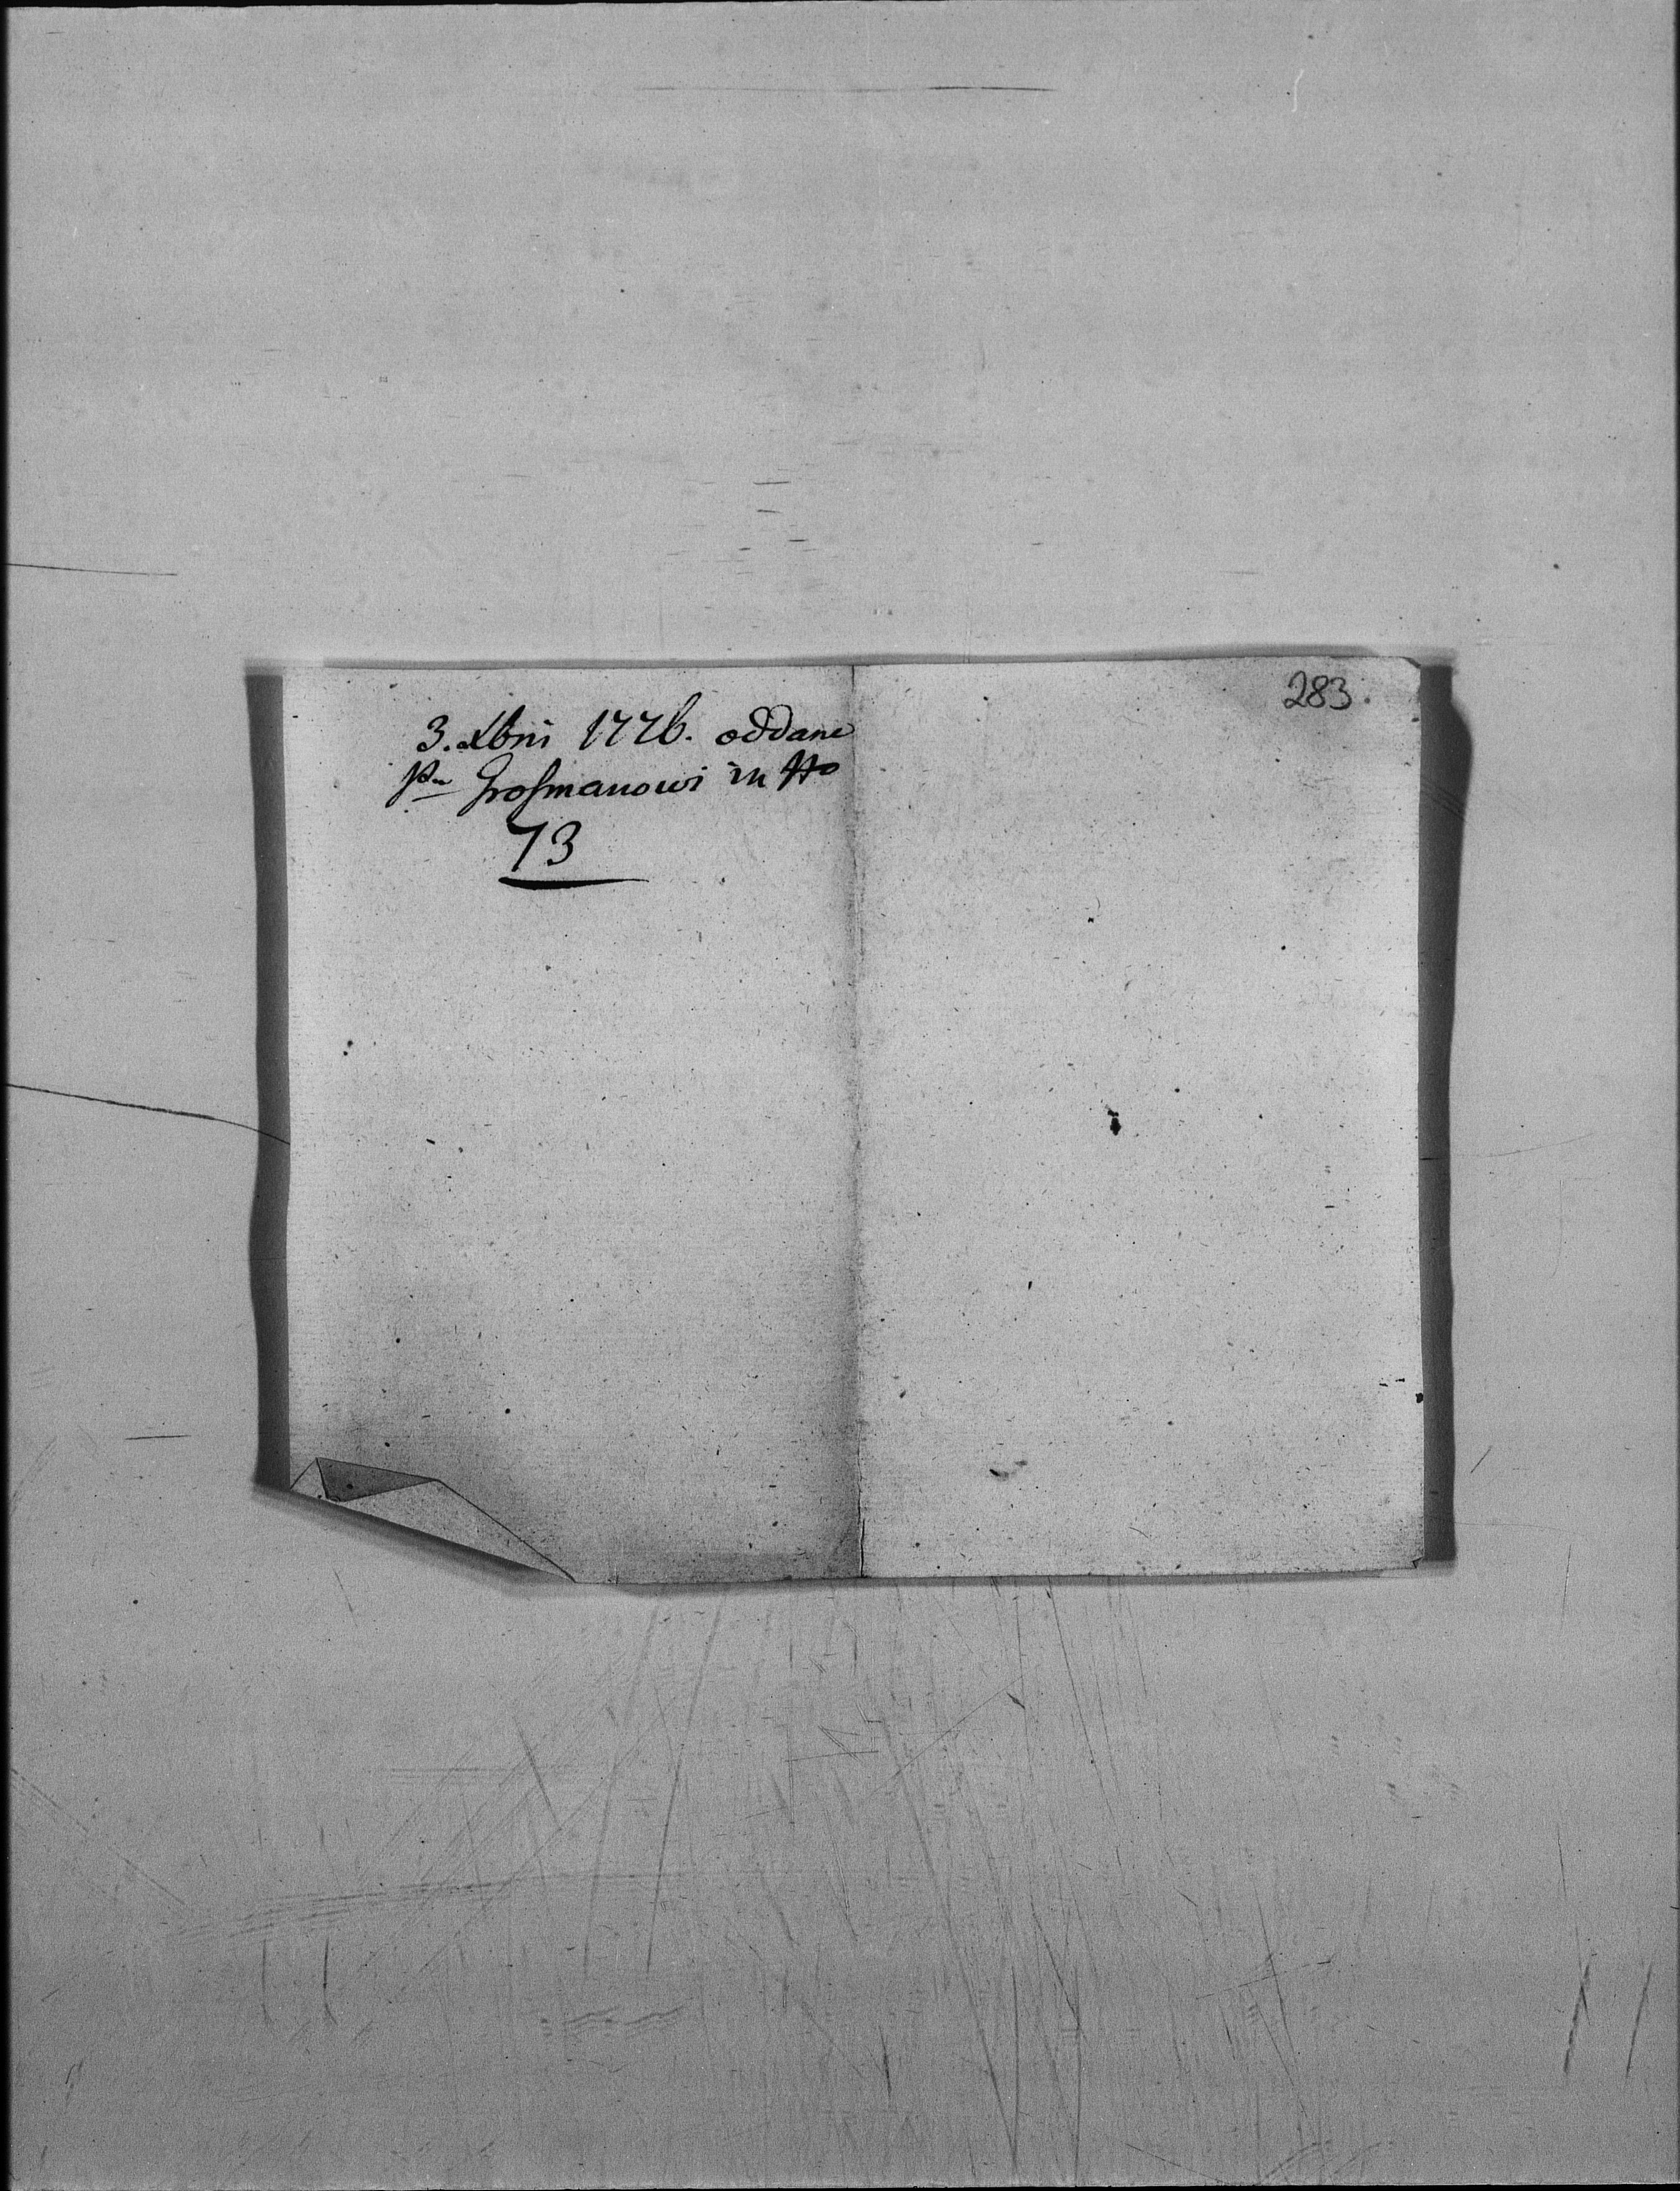 3. Xbris 1776. oddane
Pu Grosmanowi in #o
73
283.